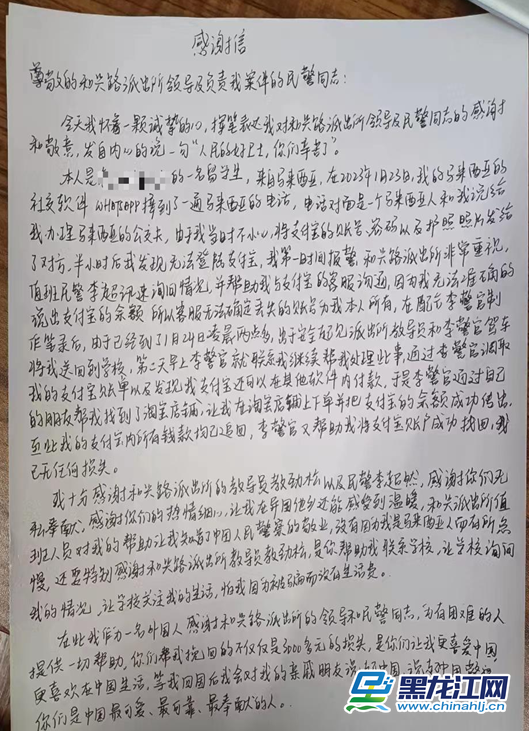 感谢信
尊敬的和兴路派出所领导及负责我案件的民警同志:
今天我怀着一颗诚挚的心,提笔表达我对和兴路派出所领导及民警同志的感谢
和敬意,发自内心的说一句“人民的好卫士,你们辛苦了”。
本人是 的一名留学生,来自马来西亚,在2023年1月23日,我的马来西亚的
社交软件 WHATSAPP 接到了一通马来西亚的电话,电话对面是一个马来西亚人和我说给
我办理马来西亚的公交卡,由于我当时不小心将支付宝的账号、密码以及护照照片发给
了对方,半小时后我发现无法登陆支付宝,我第一时间报警,和兴路派出所非常重视,
值班民警李起 迅速询问情况,并帮助我与支付宝的客服沟通,因为我无法准确的
说出支付宝的余额 所以客服无法确定丢失的账号为我本人所有,在配合李警官制
作笔录后,由于已经到1月24日凌晨两点多,出于安全起见派出所教导员和李警官驾车
将我送回到学校,第二天早上李警官就联系我继续帮我处理此事,通过李警官调取
我的支付宝账单以及发现我支付宝还可以在其他软件内付款,于是李警官通过自己
的朋友帮我找到了淘宝店铺,让我在淘宝店铺上下单并把支付宝的余额成功转出,
至此我的支付宝内所有钱款均已追回,李警官又帮助我将支付宝账户成功找回,我
已无任何损失。
我十分感谢和兴路派出所的教导员敖劲松以及民警李起 ,感谢你们无
私奉献、感谢你们的热情细心,让我在异国他乡还能感受到温暖,和兴派出所值
班人员对我的帮助让我知道了中国人民警察的敬业,没有因为我是马来西亚人而有所怠
慢,还要特别感谢和兴路派出所教导员敖劲松,是你帮助我联系学校,让学校询问
我的情况,让学校关注我的生活,怕我因为被骗而没有生活费。
在此我作为一名外国人 感谢和兴路派出所的领导和民警同志,为有困难的人
提供一切帮助,你们帮我挽回的不仅仅是3000多元的损失,是你们让我更喜爱中国
更喜欢在中国生活,等我回国后我会对我的亲戚朋友说 中国
你们是中国最可爱、最可靠、最奉献的人。
黑龙江网
www.chinahlj.cn